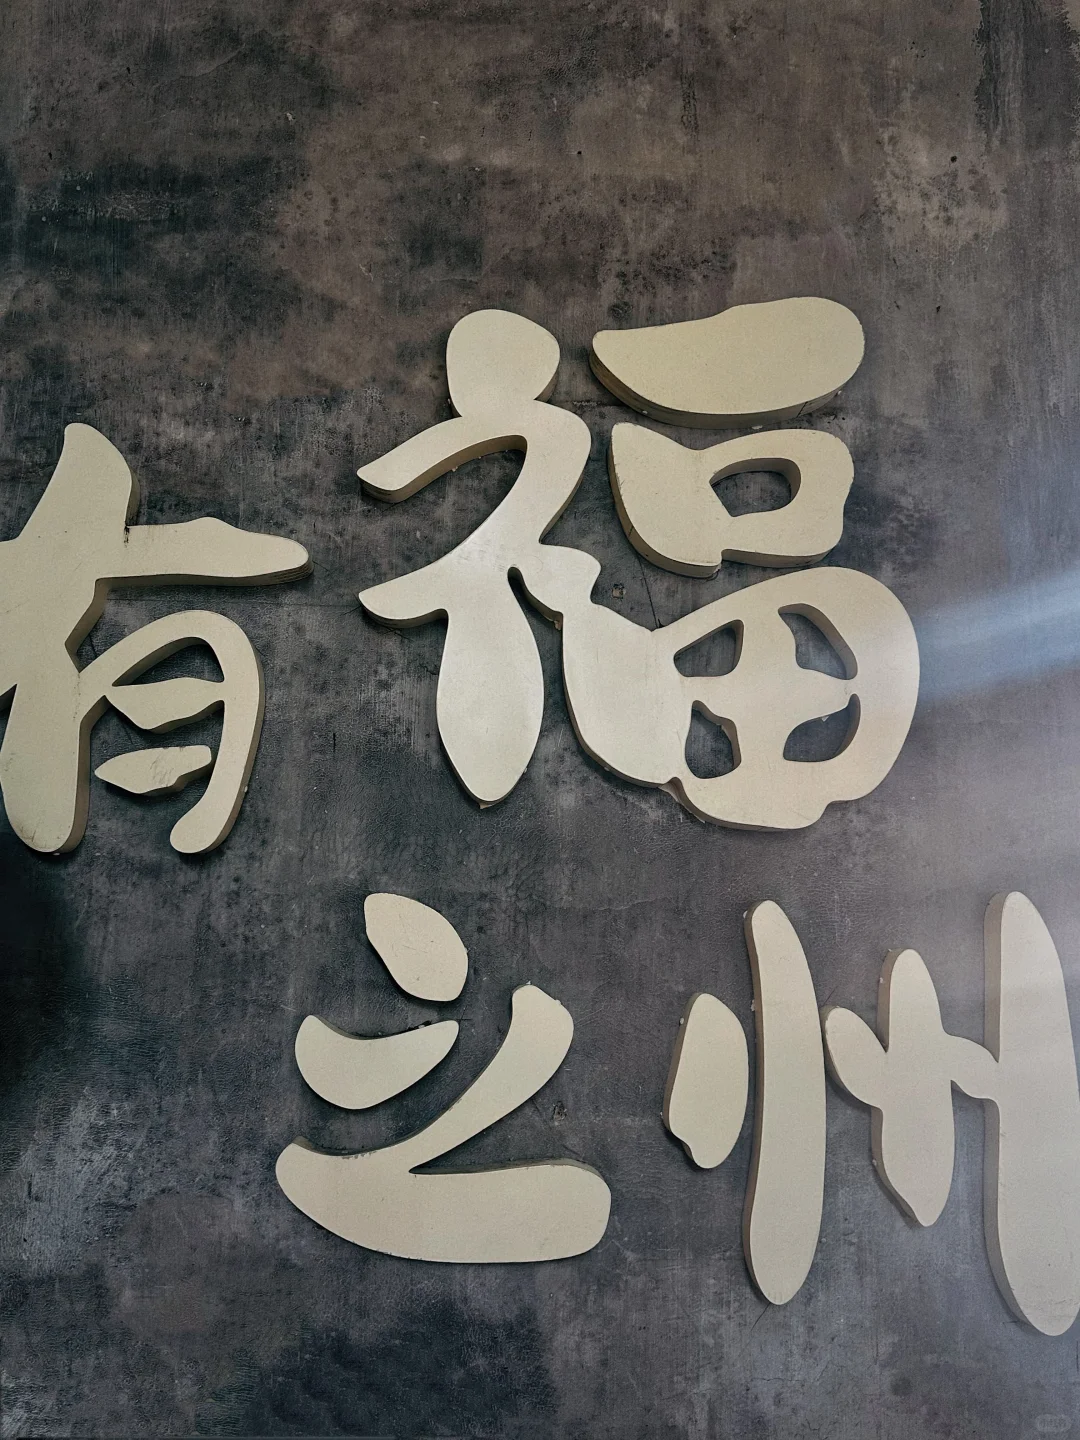 有福
之州